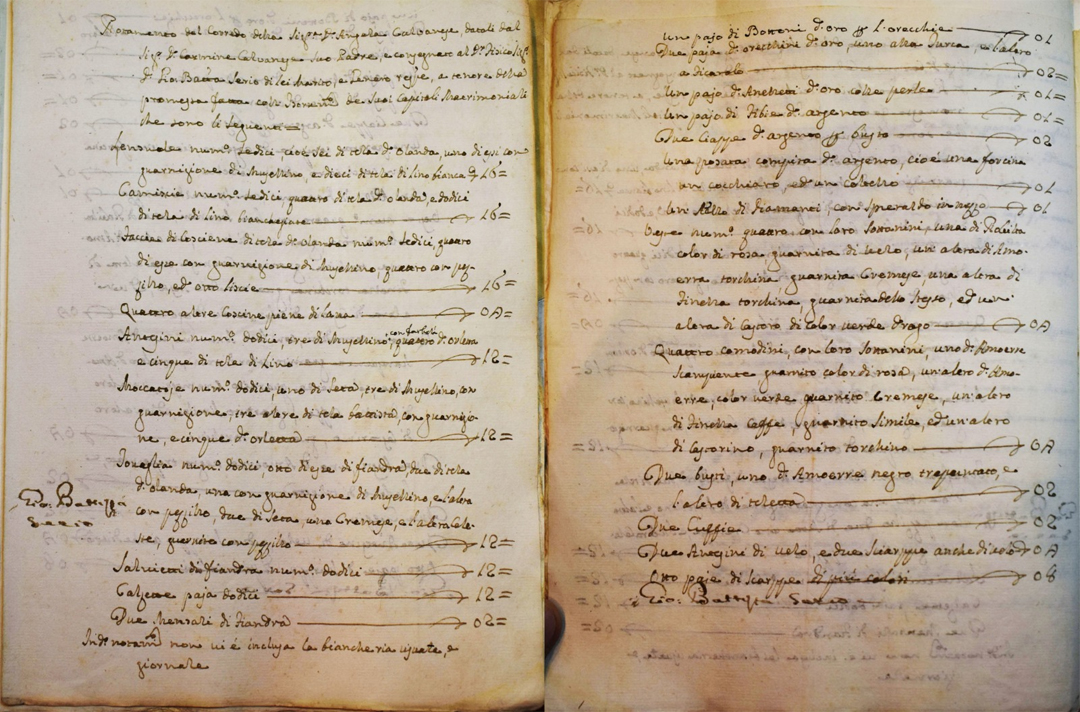 Notamento del Corredo della Sig.ra D. Angela Calvanese, datoli dal
Sig.r D. Carmine Calvanese suo Padre, e consegnato al D.r Fisico Sig.r
D. Gio: Batta Serio di lei marito, e Genero resp.e, a tenore della
promessa fatta coll' di Capitoli Matrimoniali
che sono li seguenti
Lenzuole num.o sedici, cioè sei di tela d'olanda, uno di essi con
guarnizione di Musellino, e dieci di tela di lino 16=
Camiscie num.o sedici, quattro di tela d'olanda, e dodici
di tela di lino, 16=
Faccie di Coscini di tela d'olanda num.o sedici, quattro
di esse con guarnizione di Musellino, quattro con piz-
zillo, ed' otto liscie 16=
Quattro altre Coscine piene di lana 04=
Antesini num.o dodici, tre di Musellino, quattro d'orletta
e cinque di tela di lino 12=
Moccatoje num.o dodici, uno di seta, tre di Musellino, con
guarnizione, tre altre di tela battista, con guarnizio-
ne, e cinque d'orletta 12=
Tovaglia num.o dodici, otto di esse di fiandra, due di tela
d'olanda, una con guarnizione di Musellino, e l'altra
con pizzillo, due di seta, una Cremese, e l'altra Cele-
ste, guarnite con pizzillo 12=
Gio: Battista
Serio
Salvietti di fiandra num.o dodici 12=
Calzette paja dodici 12=
Due Mensali di fiandra 02=
Ind.o notam.to non vi è inclusa la biancheria usuata, e
giornale
Un pajo di Bottoni d'oro p l'orecchie 01
Due paja d'orecchini d'oro, uno alla Turca, e l'altro
02=
Un pajo d'Anelletti d'oro colle perle 01=
Un pajo di Fibie d'argento 01=
Due Ciappe d'argento p busto 02
Una posata compita d'argento, cioè una forcina
un cocchiaro, ed' un coltello 01
Un di Diamanti, con smeraldo in mezzo 01
Veste num.o quattro con loro sottanini, una di
color di rosa, guarnita di velo, un'altra di Amo-
erra torchina, guarnita Cremese, una altra di
torchina, guarnita dello stesso, ed' un-
altra di Castoro di color verde drago 04
Quattro comodini, con loro sottanini, uno d'Amoerre
guarnito color di rosa, un'altro d'Amo-
erre, color verde guarnito Cremese, un'altro
di caffè, guarnito simile, ed' un'altro
di Castorino, guarnito torchino 04
Due busti, uno d'Amoerre negro trapuntato, e
l'altro di teletta 02
Due Cuffie 02
Due Antesini di velo, e due sciarppe anche di velo 04
Otto paje di scarppe di più colori 08
Gio: Battista Serio